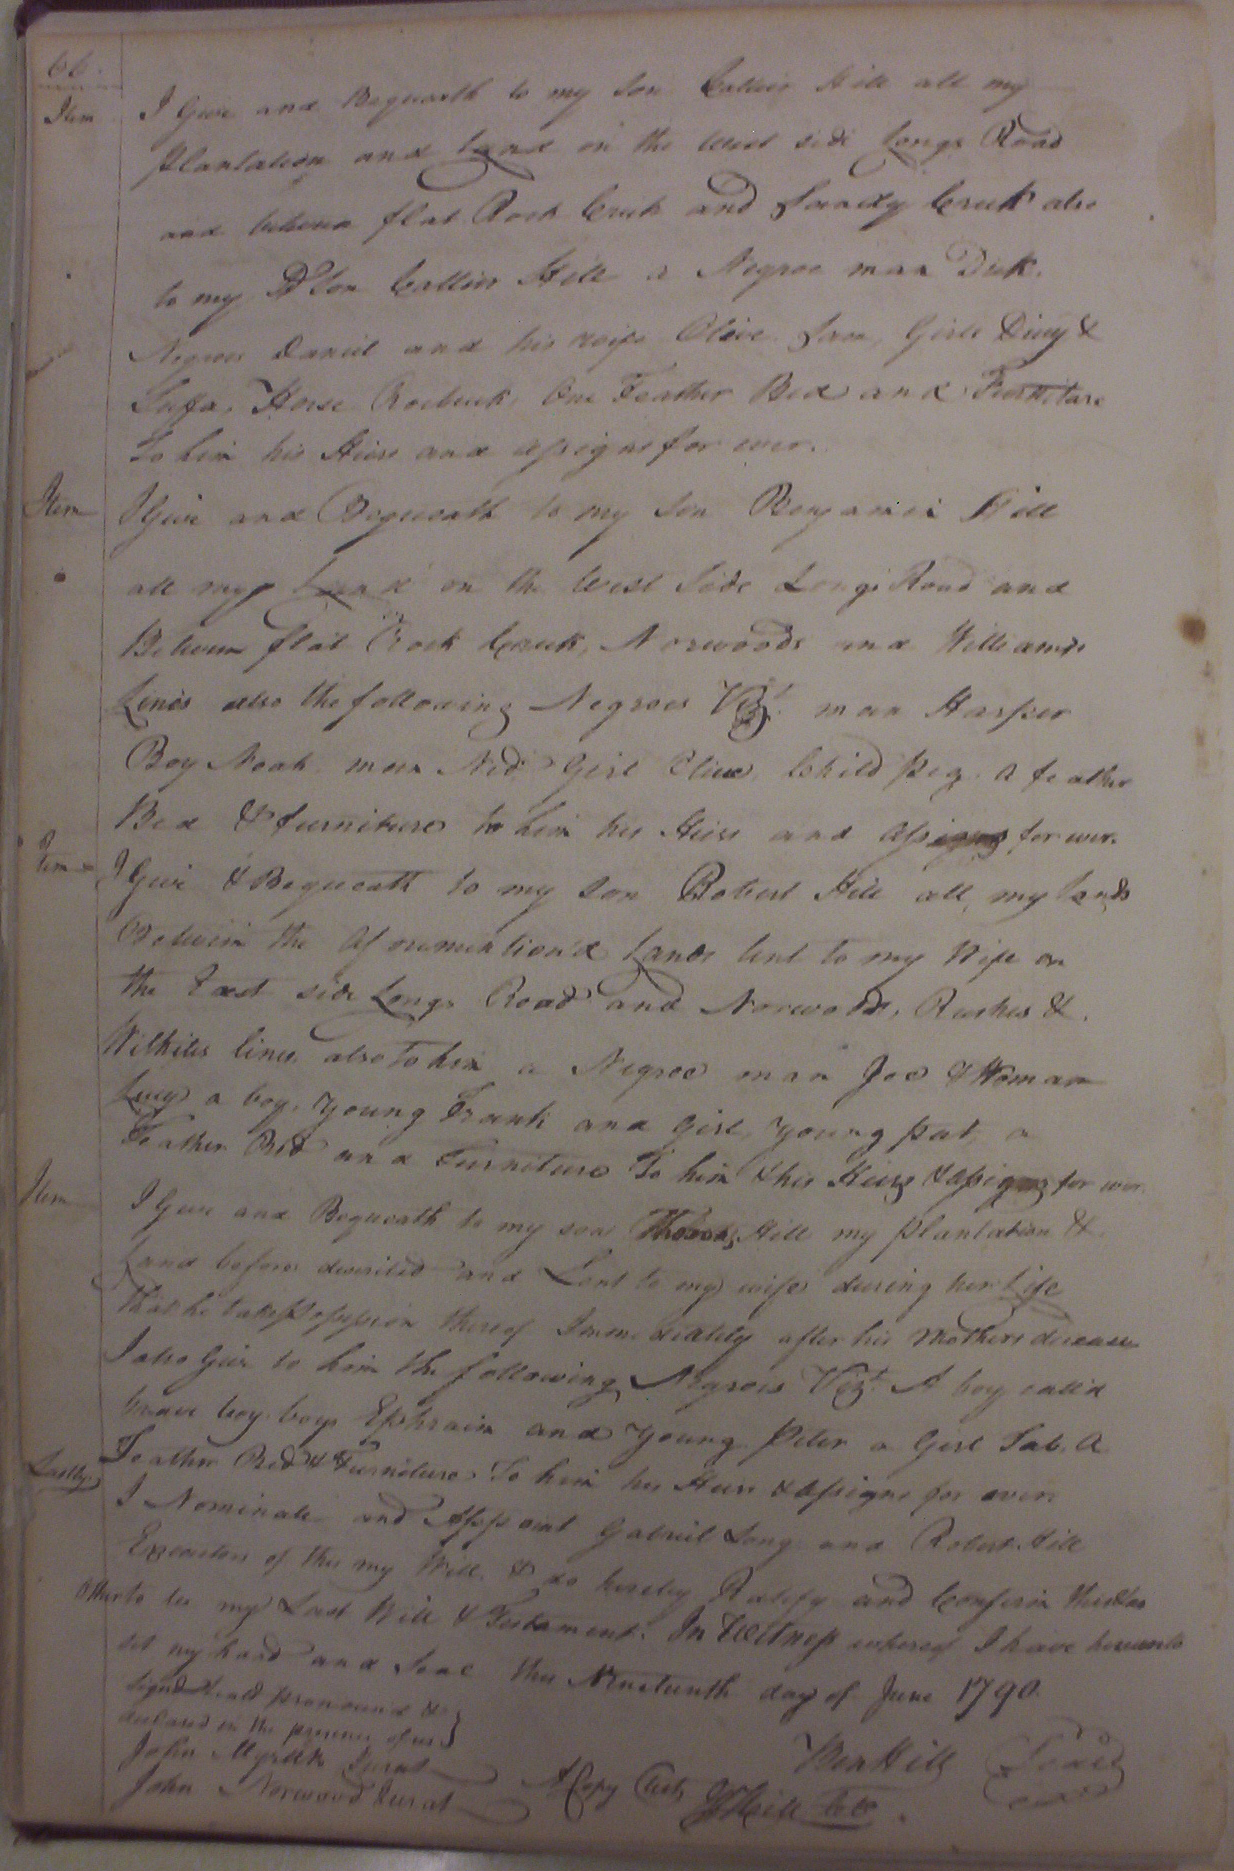 66.
Item I Give and Bequeath to my Son Hill all my
Plantation and Land on the West side Longs Road
and between flat Rock Creek and Sandy Creek also
to my Son Hill a Negroe man Dick.
Negroes Daniel and his wife Olive Sam, Girls &
Horse Roebuck, One Feather Bed and Furniture
To him his Heirs and assigns for ever.
Item I Give and Bequeath to my Son Benjamin Hill
all my Land on the West Side Longs Road and
Between flat Rock Creek, Norwoods and Williams
Lines also the following Negroes Vizt. man Harper
Boy Noah man Ned Girl Child peg. a feather
Bed & furniture to him his Heirs and assigns for ever.
Item I Give & Bequeath to my Son Robert Hill all my Lands
Between the Aforemention'd Lands lent to my Wife on
the East side Longs Road and Norwoods, Rushes &
lines also to him a Negroe man Joe & Woman
Lucy a boy, young Frank and Girl, young pat, a
Feather Bed and Furniture To him & his Heirs & assigns for ever.
Item I Give and Bequeath to my son Thomas Hill my plantation &
Land before described and Lent to my wife during her Life
that he take possession thereof Immediately after his Mothers decease
I also Give to him the following Negroes Vizt. A boy call'd
boy. boys Ephraim and Young Peter a Girl Tab. A
Feather Bed & Furniture To him his Heirs & assigns for ever
Lastly I Nominate and Appoint Gabriel Long and Robert Hill
Executors of this my Will. & do hereby Ratify and Confirm this & no
Other to be my Last Will & Testament. In Witness whereof I have hereunto
set my hand and Seal this Nineteenth day of June 1790.
Signd Seald pronounc'd &
declared in the presence of us
Hill Seal
John Myrick Jurat
John Norwood Jurat
A Copy Test, Hill